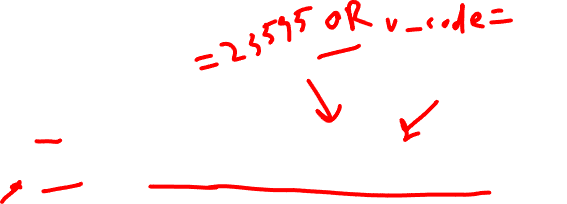 =23595 OR v_code=